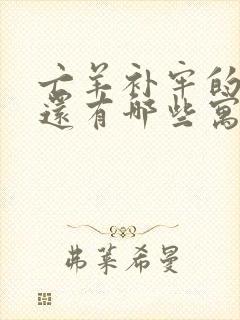 亡羊补牢的
还有哪些寓
弗莱希曼